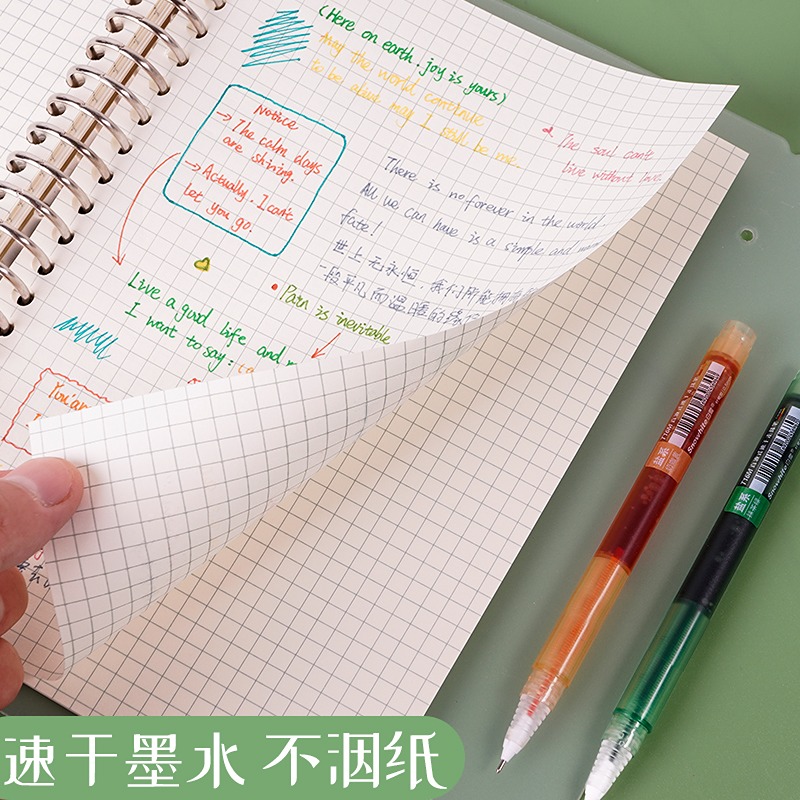 (Here on earth. joy is yours)
may the world continue
to be alive may I still be me.
Notice
→ The calm days
are shining.
→ Actually. I can't
let you go.
The soul can't
live without love
There is no forever in the world
All we can have is a simple and warm
fate!
世上无永恒，我们所能拥有的
一段平凡而温暖的缘
Live a good life and
I want to say:
Pain is inevitable
You're
T16M
Snowhite
盐系
T16M
Snowhite
盐系
速干墨水 不洇纸